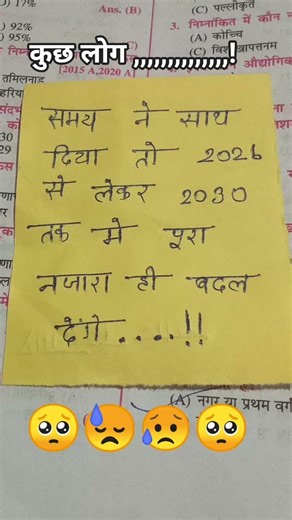 D) 17%
Ans. (B)
(C) पल्लीकृत
3. निम्नांकित में कौन
) 92%
) 95%
(A) कोच्चि
कुछ लोग ,,,,,,,,,,,,,,,!
[2015 A,2020 A]
तमिलनाडु
औद्योगिक
समय ने साथ
दिया तो 2026
से लेकर 2030
तक मे पूरा
नजारा ही बदल
देंगे . . . . !!
(A) नगर या प्रथम वर्ग
🥺😓😥🥺